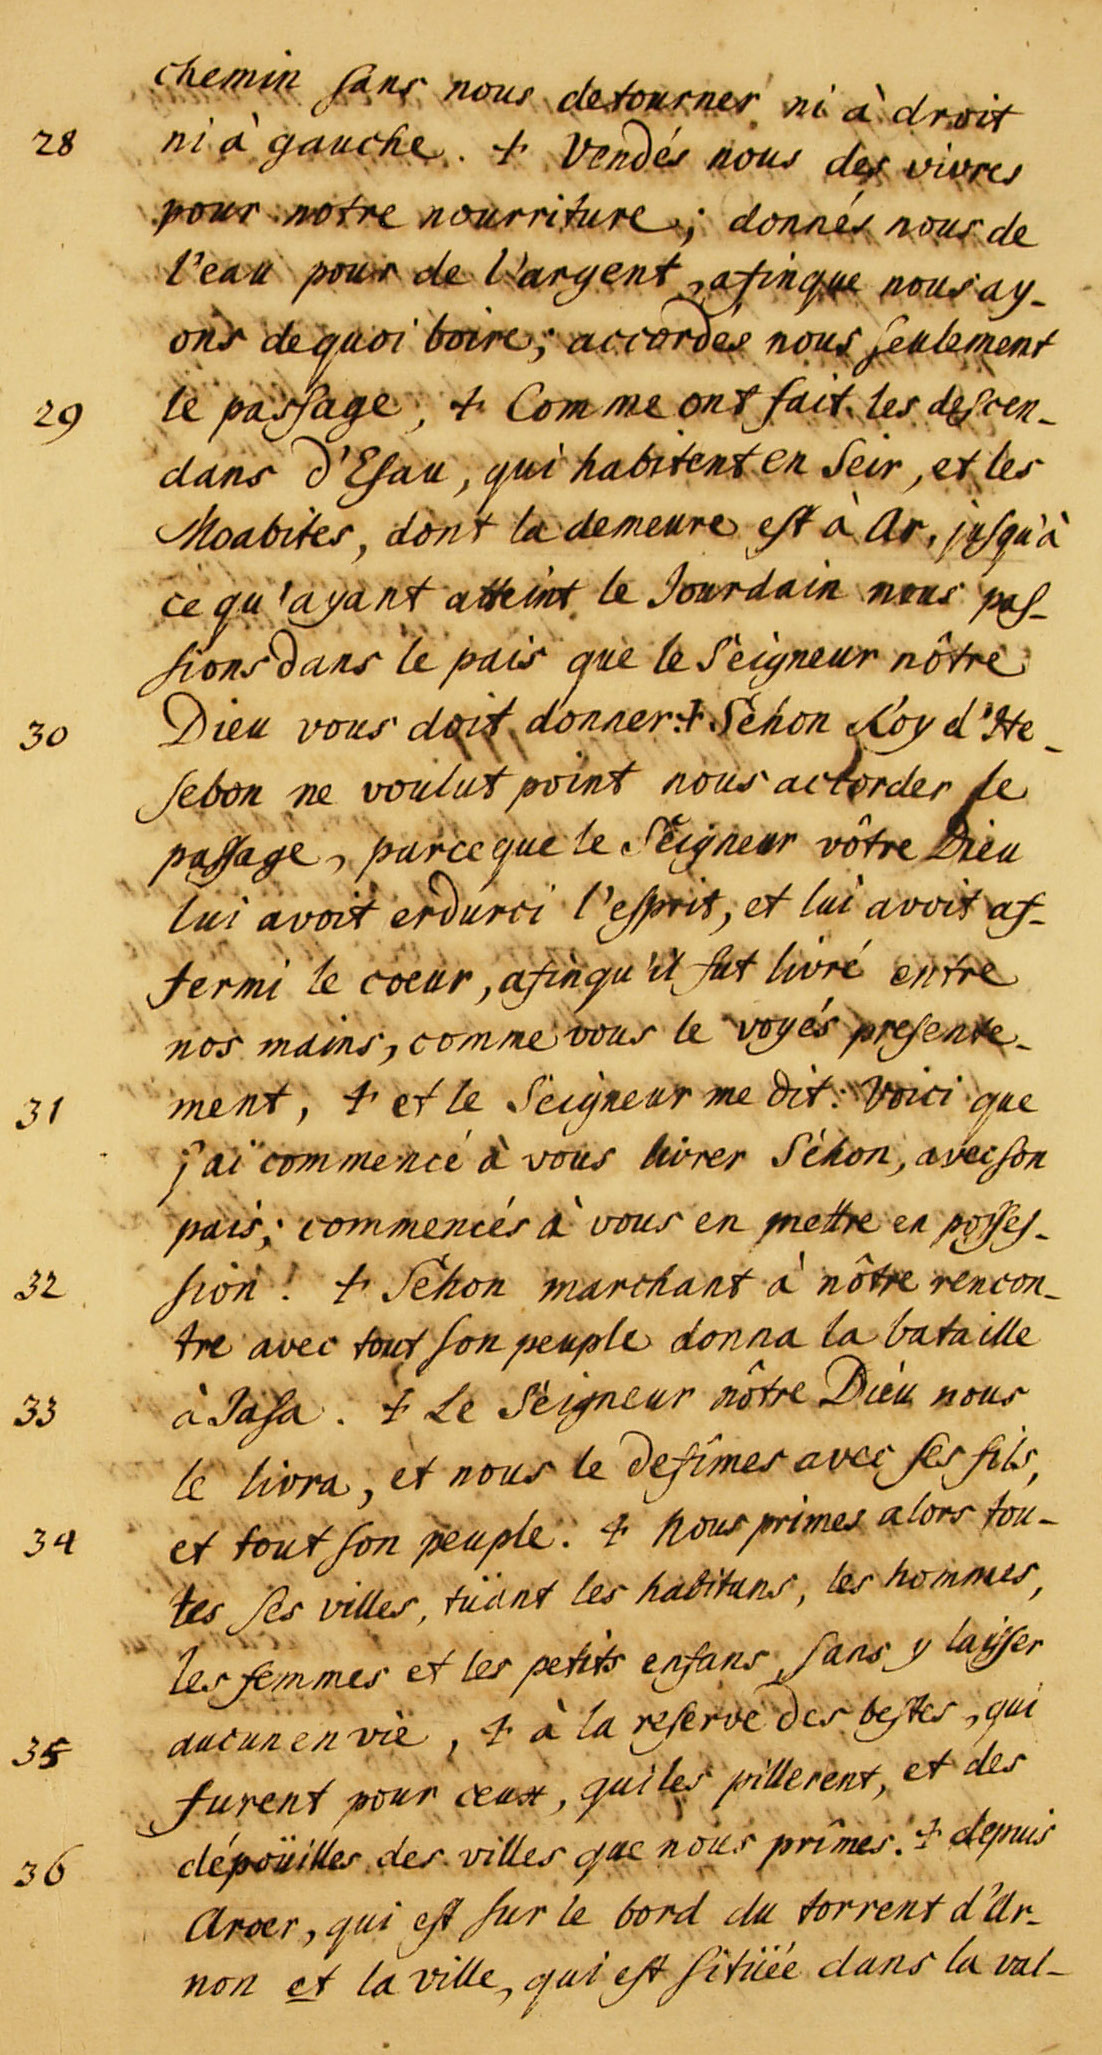 chemin sans nous detourner ni à droit
28 ni à gauche. + Vendés nous des vivres
pour notre nourriture; donnés nous de
l'eau pour de l'argent, afinque nous ay-
ons dequoi boire; accordes nous seulement
29 le passage, + Comme ont fait les descen-
dans d'Esau, qui habitent en Seir, et les
Moabites, dont la demeure est à Ar, jusqu'à
ce qu'ayant atteint le Jourdain nous pas-
sions dans le pais que le Seigneur nôtre
30 Dieu vous doit donner. + Séhon Roy d'He-
sebon ne voulut point nous accorder le
passage, parceque le Seigneur vôtre Dieu
lui avoit endurci l'esprit, et lui avoit af-
fermi le coeur, afinqu'il fut livré entre
nos mains, comme vous le voyés presente-
31 ment, + et le Seigneur me dit: Voici que
j'ai commencé à vous livrer Séhon, avec son
pais; commencés à vous en mettre en posses-
32 sion! + Séhon marchant à nôtre rencon-
tre avec tout son peuple donna la bataille
33 à Jasa. + Le Seigneur nôtre Dieu nous
le livra, et nous le defîmes avec ses fils,
34 et tout son peuple. + Nous primes alors tou-
tes ses villes, tüant les habitans, les hommes,
les femmes et les petits enfans, sans y laisser
35 aucun en vie, + à la reserve des bestes, qui
furent pour ceux, qui les pillerent, et des
36 dépoüilles des villes que nous prîmes. + depuis
Aroer, qui est sur le bord du torrent d'Ar-
non et la ville, qui est sitüée dans la val-